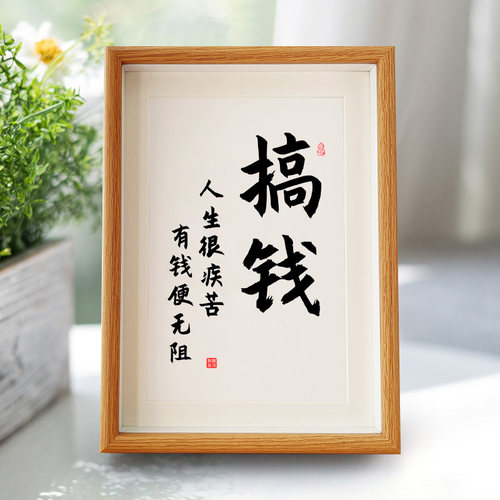 搞钱
人生很疾苦
有钱便无阻